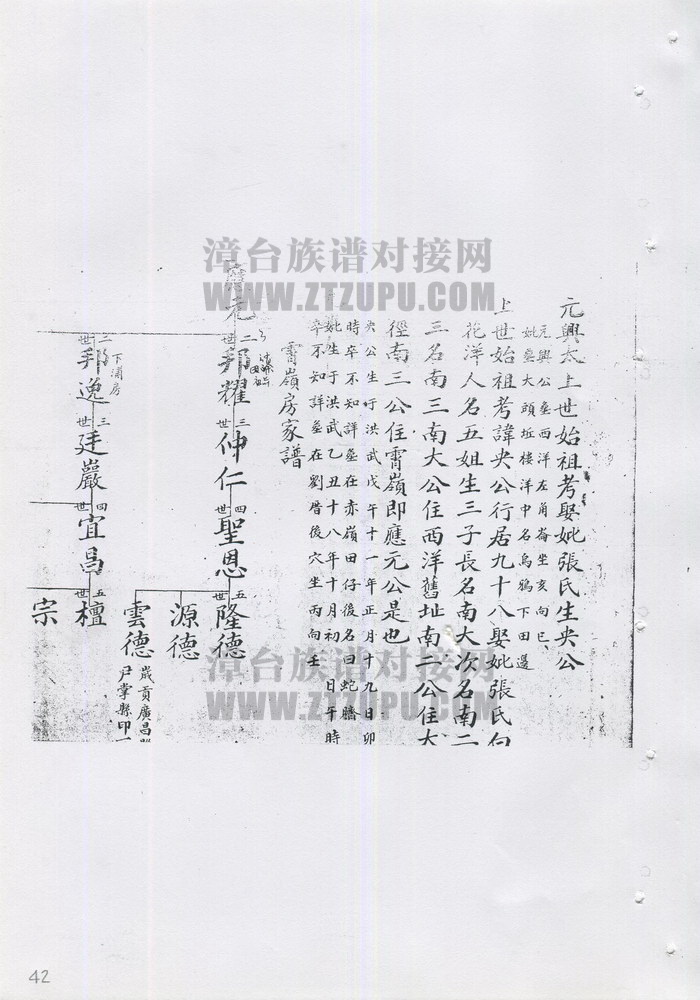 元興太上世始祖考娶妣張氏生央公
元興公墓西洋左角崙坐亥向巳
妣墓大頭坵樓洋中名烏鴉下田邊
上世始祖考諱央公行居九十八娶妣張氏
花洋人名五姐生三子長名南大次名南二
三名南三南大公住西洋舊址南二公住大
徑南三公住霄嶺即應元公是也
央公生于洪武戊午十一年正月十九日卯
時卒不知詳墓在赤嶺田仔後名曰蛇臍
妣生于洪武乙丑十八年十月初 日午時
卒不知詳墓在劉厝後穴坐丙向壬
霄嶺房家譜
應元
二世 邦耀
三世 仲仁
四世 聖恩
五世 隆德
源德
雲德
歲貢廣昌
尹掌縣印
二世 邦逸
下浦房
三世 廷巖
四世 宜昌
五世 檀
宗
漳台族谱对接网
WWW.ZTZUPU.COM
漳台族谱对接网
WWW.ZTZUPU.COM
42